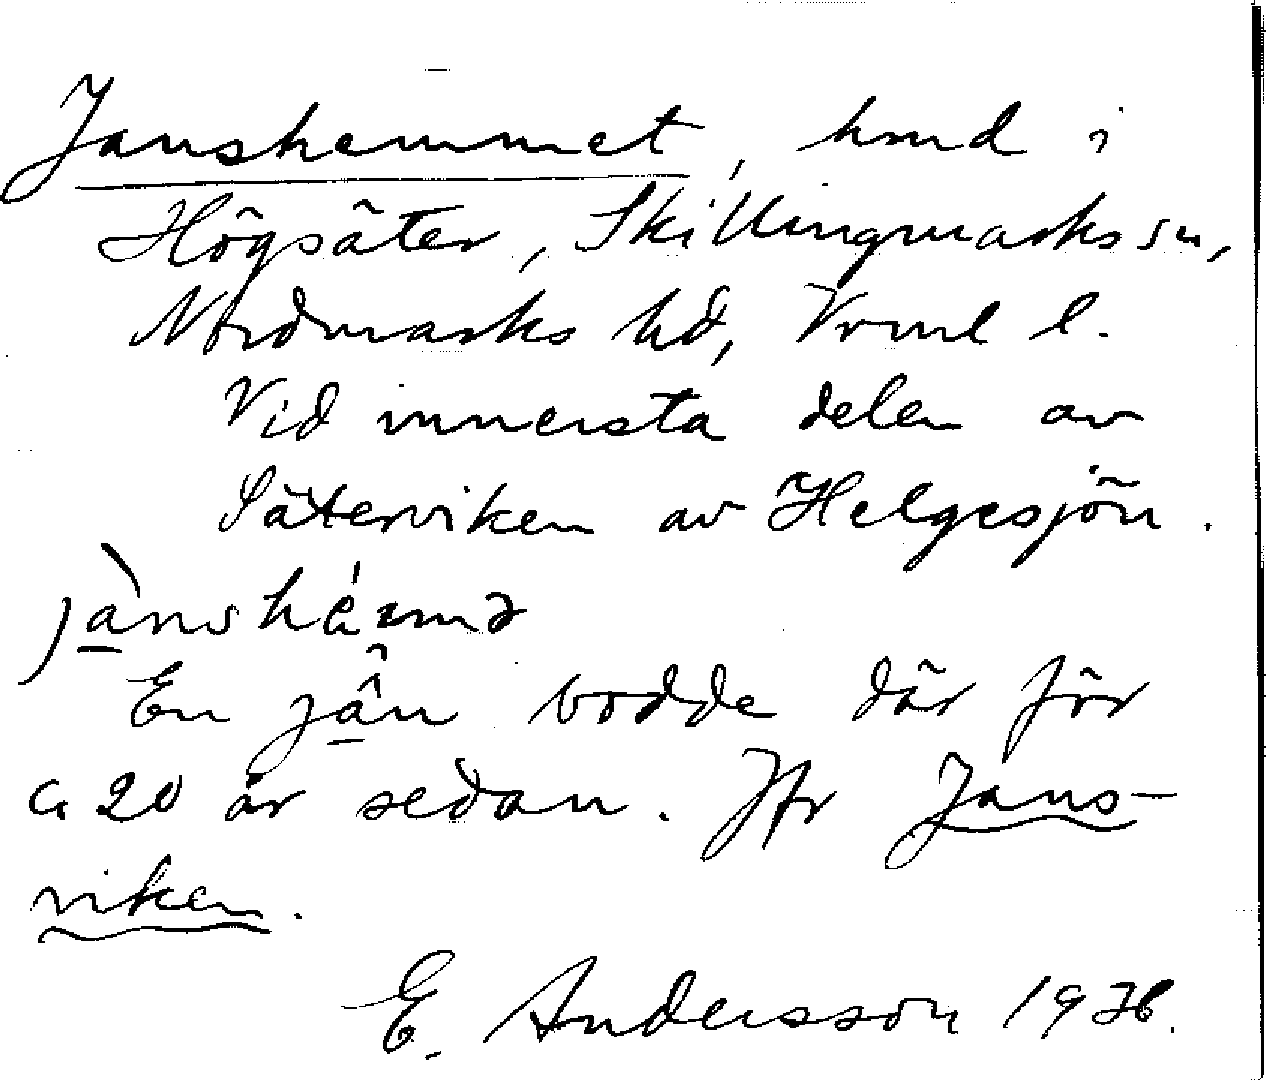 Janshemmet, hmd i
Högsäter, Skillingmarks sn,
Nordmarks hd, Vrml l.
Vid innersta delen av
Säterviken av Helgesjön.
jànshémə
En jân bodde där för
ca 20 år sedan. Jfr Jans-
viken.
E. Andersson 1936.